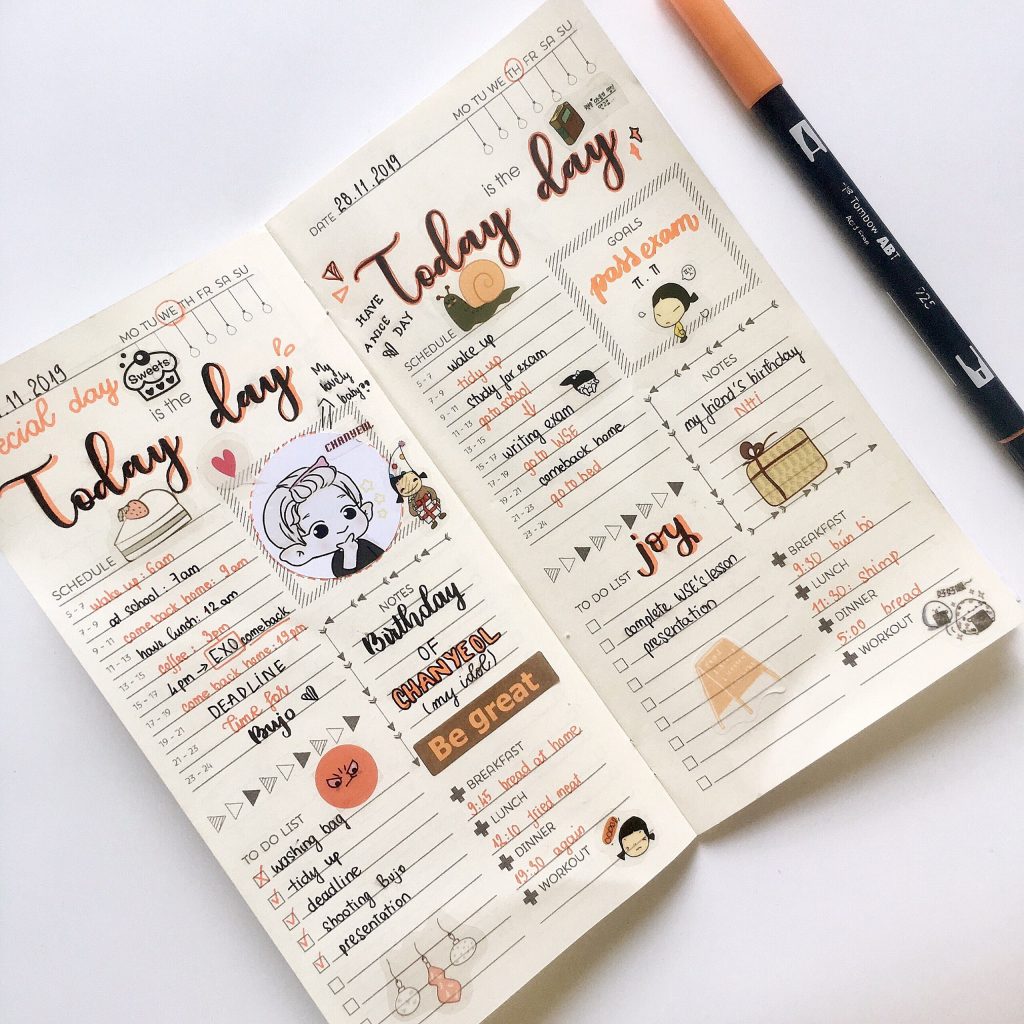 MO TU WE TH FR SA SU
.11.2019
ecial day
Sweets
is the
Today day
My
lovely
baby
CHANYEOL
SCHEDULE
5 - 7 wake up: 6am
7 - 9 at school: 7am
9 - 11 come back home: 9am
11 - 13 have lunch: 12am
13 - 15 coffee: 3pm
15 - 17 4pm → EXO comeback
17 - 19 come back home: 19pm
19 - 21 DEADLINE
21 - 23 Time for
23 - 24 Bujo
NOTES
Birthday
OF
CHANYEOL
(my idol)
Be great
TO DO LIST
washing bag
tidy up
deadline
shooting Bujo
presentation
BREAKFAST
9:45 bread at home
LUNCH
12:10 fried meat
DINNER
19:30 again
WORKOUT
MO TU WE TH FR SA SU
DATE 28.11.2019
is the
Today day
HAVE
A NICE
DAY
GOALS
pass exam
SCHEDULE
5 - 7 wake up
7 - 9 tidy up
9 - 11 study for exam
11 - 13 go to school
13 - 15
15 - 17 writing exam
17 - 19 go to WSE
19 - 21 comeback home
21 - 23 go to bed
23 - 24
NOTES
my friend's birthday
Nhi
joy
TO DO LIST
complete WSE's lesson
presentation
BREAKFAST
9:30 bún bò
LUNCH
11:30: shimp
DINNER
5:00 bread
WORKOUT
Tombow ABT
925